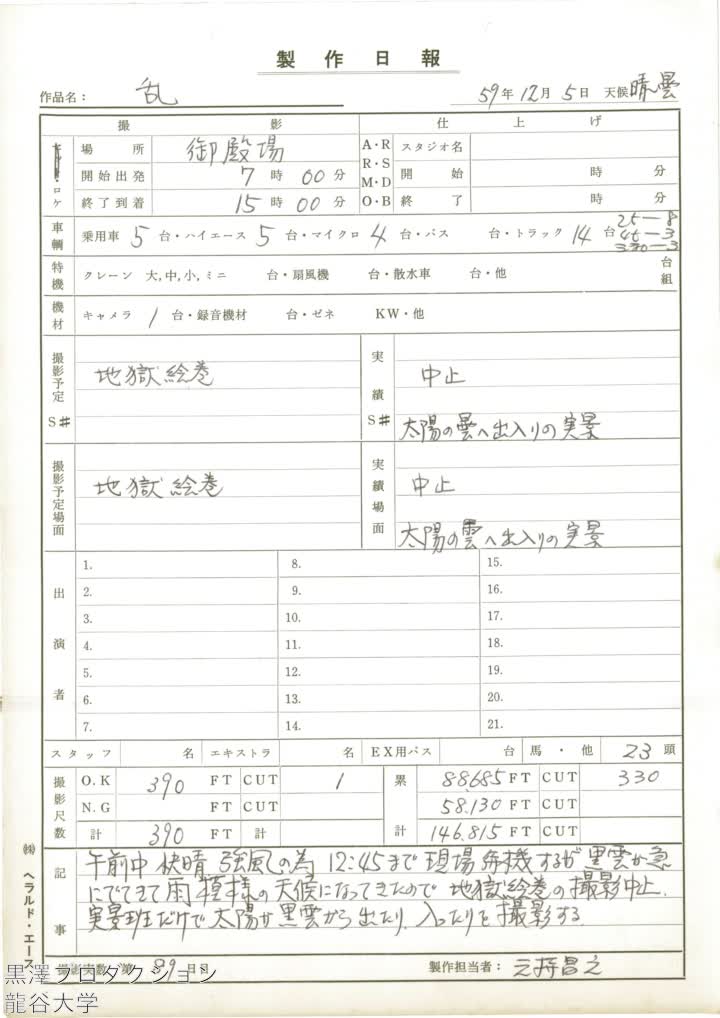 製作日報
作品名： 乱 59年12月5日 天候 晴曇
撮影 仕上げ
・ロケ 場所 御殿場 A・R R・S M・D O・B スタジオ名
開始出発 7時00分 開始 時 分
終了到着 15時00分 終了 時 分
車輌 乗用車 5 台・ハイエース 5 台・マイクロ 4 台・バス 台・トラック 14 台 25―8 45―3 330―3
特機 クレーン 大,中,小,ミニ 台・扇風機 台・散水車 台・他 台組
機材 キャメラ 1 台・録音機材 台・ゼネ KW・他
撮影予定S# 地獄絵巻 実績S# 中止
太陽の雲へ出入りの実景
撮影予定場面 地獄絵巻 実績場面 中止
太陽の雲へ出入りの実景
出演者
1. 8. 15.
2. 9. 16.
3. 10. 17.
4. 11. 18.
5. 12. 19.
6. 13. 20.
7. 14. 21.
スタッフ 名 エキストラ 名 EX用バス 台 馬・他 23頭
撮影尺数 O.K 390 FT CUT 1 累計 88,685 FT CUT 330
N.G FT CUT 58.130 FT CUT
計 390 FT 計 146,815 FT
記事
午前中 快晴 強風の為 12:45まで 現場待機するが 黒雲が急
にでてきて雨模様の天候になってきたので 地獄絵巻の撮影中止.
実景班だけで太陽が黒雲から出たり、入ったりを撮影する
撮影日数 第 89 日目 製作担当者：
㈱ ヘラルド・エース
黒澤プロダクション
龍谷大学